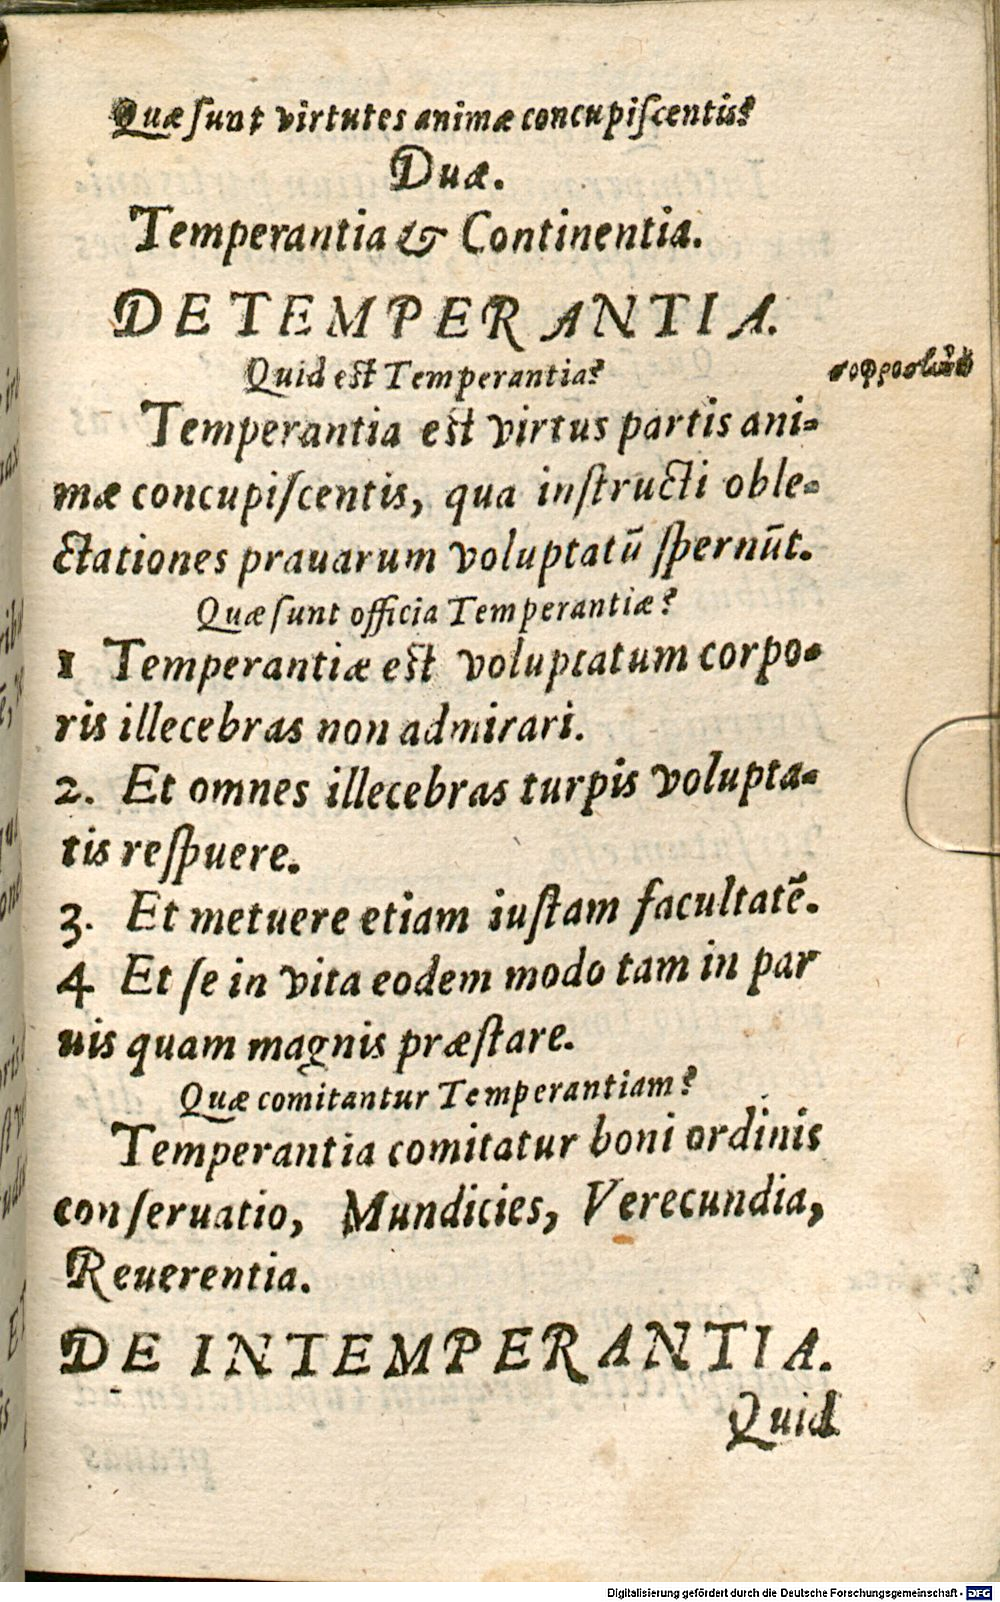 Quæ ſunt virtutes animæ concupiſcentis?
Duæ.
Temperantia & Continentia.
DE TEMPERANTIA.
Quid est Temperantia?
Temperantia est virtus partis ani-
mæ concupiſcentis, qua inſtructi oble-
ctationes prauarum voluptatū ſpernūt.
Quæ ſunt officia Temperantiæ?
1 Temperantiæ est voluptatum corpo-
ris illecebras non admirari.
2. Et omnes illecebras turpis volupta-
tis reſpuere.
3. Et metuere etiam iuſtam facultatē.
4 Et ſe in vita eodem modo tam in par
uis quam magnis præſtare.
Quæ comitantur Temperantiam?
Temperantia comitatur boni ordinis
conſeruatio, Mundicies, Verecundia,
Reuerentia.
DE INTEMPERANTIA.
Quid
Digitalisierung gefördert durch die Deutsche Forschungsgemeinschaft - DFG